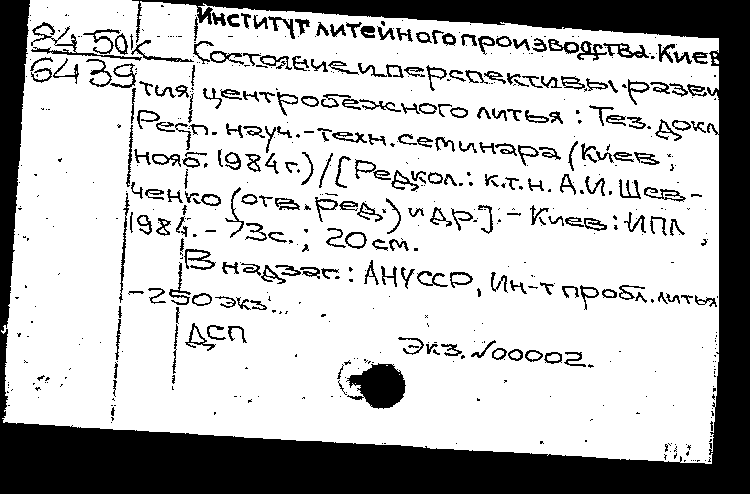 Институт литейного производства. Киев
84-50к
Состояние и перспективы разви
6439
тия центробежного литья : Тез. докл
Респ. науч.-техн. семинара (Киев ;
нояб. 1984 г.) / [Редкол.: к.т.н. А.И. Шев-
ченко (отв. ред.) и др.]. - Киев : ИПЛ ,
1984. - 73 с. ; 20 см.
В надзаг.: АН УССР, Ин-т пробл. литья
- 250 экз...
ДСП
Экз. №00002.